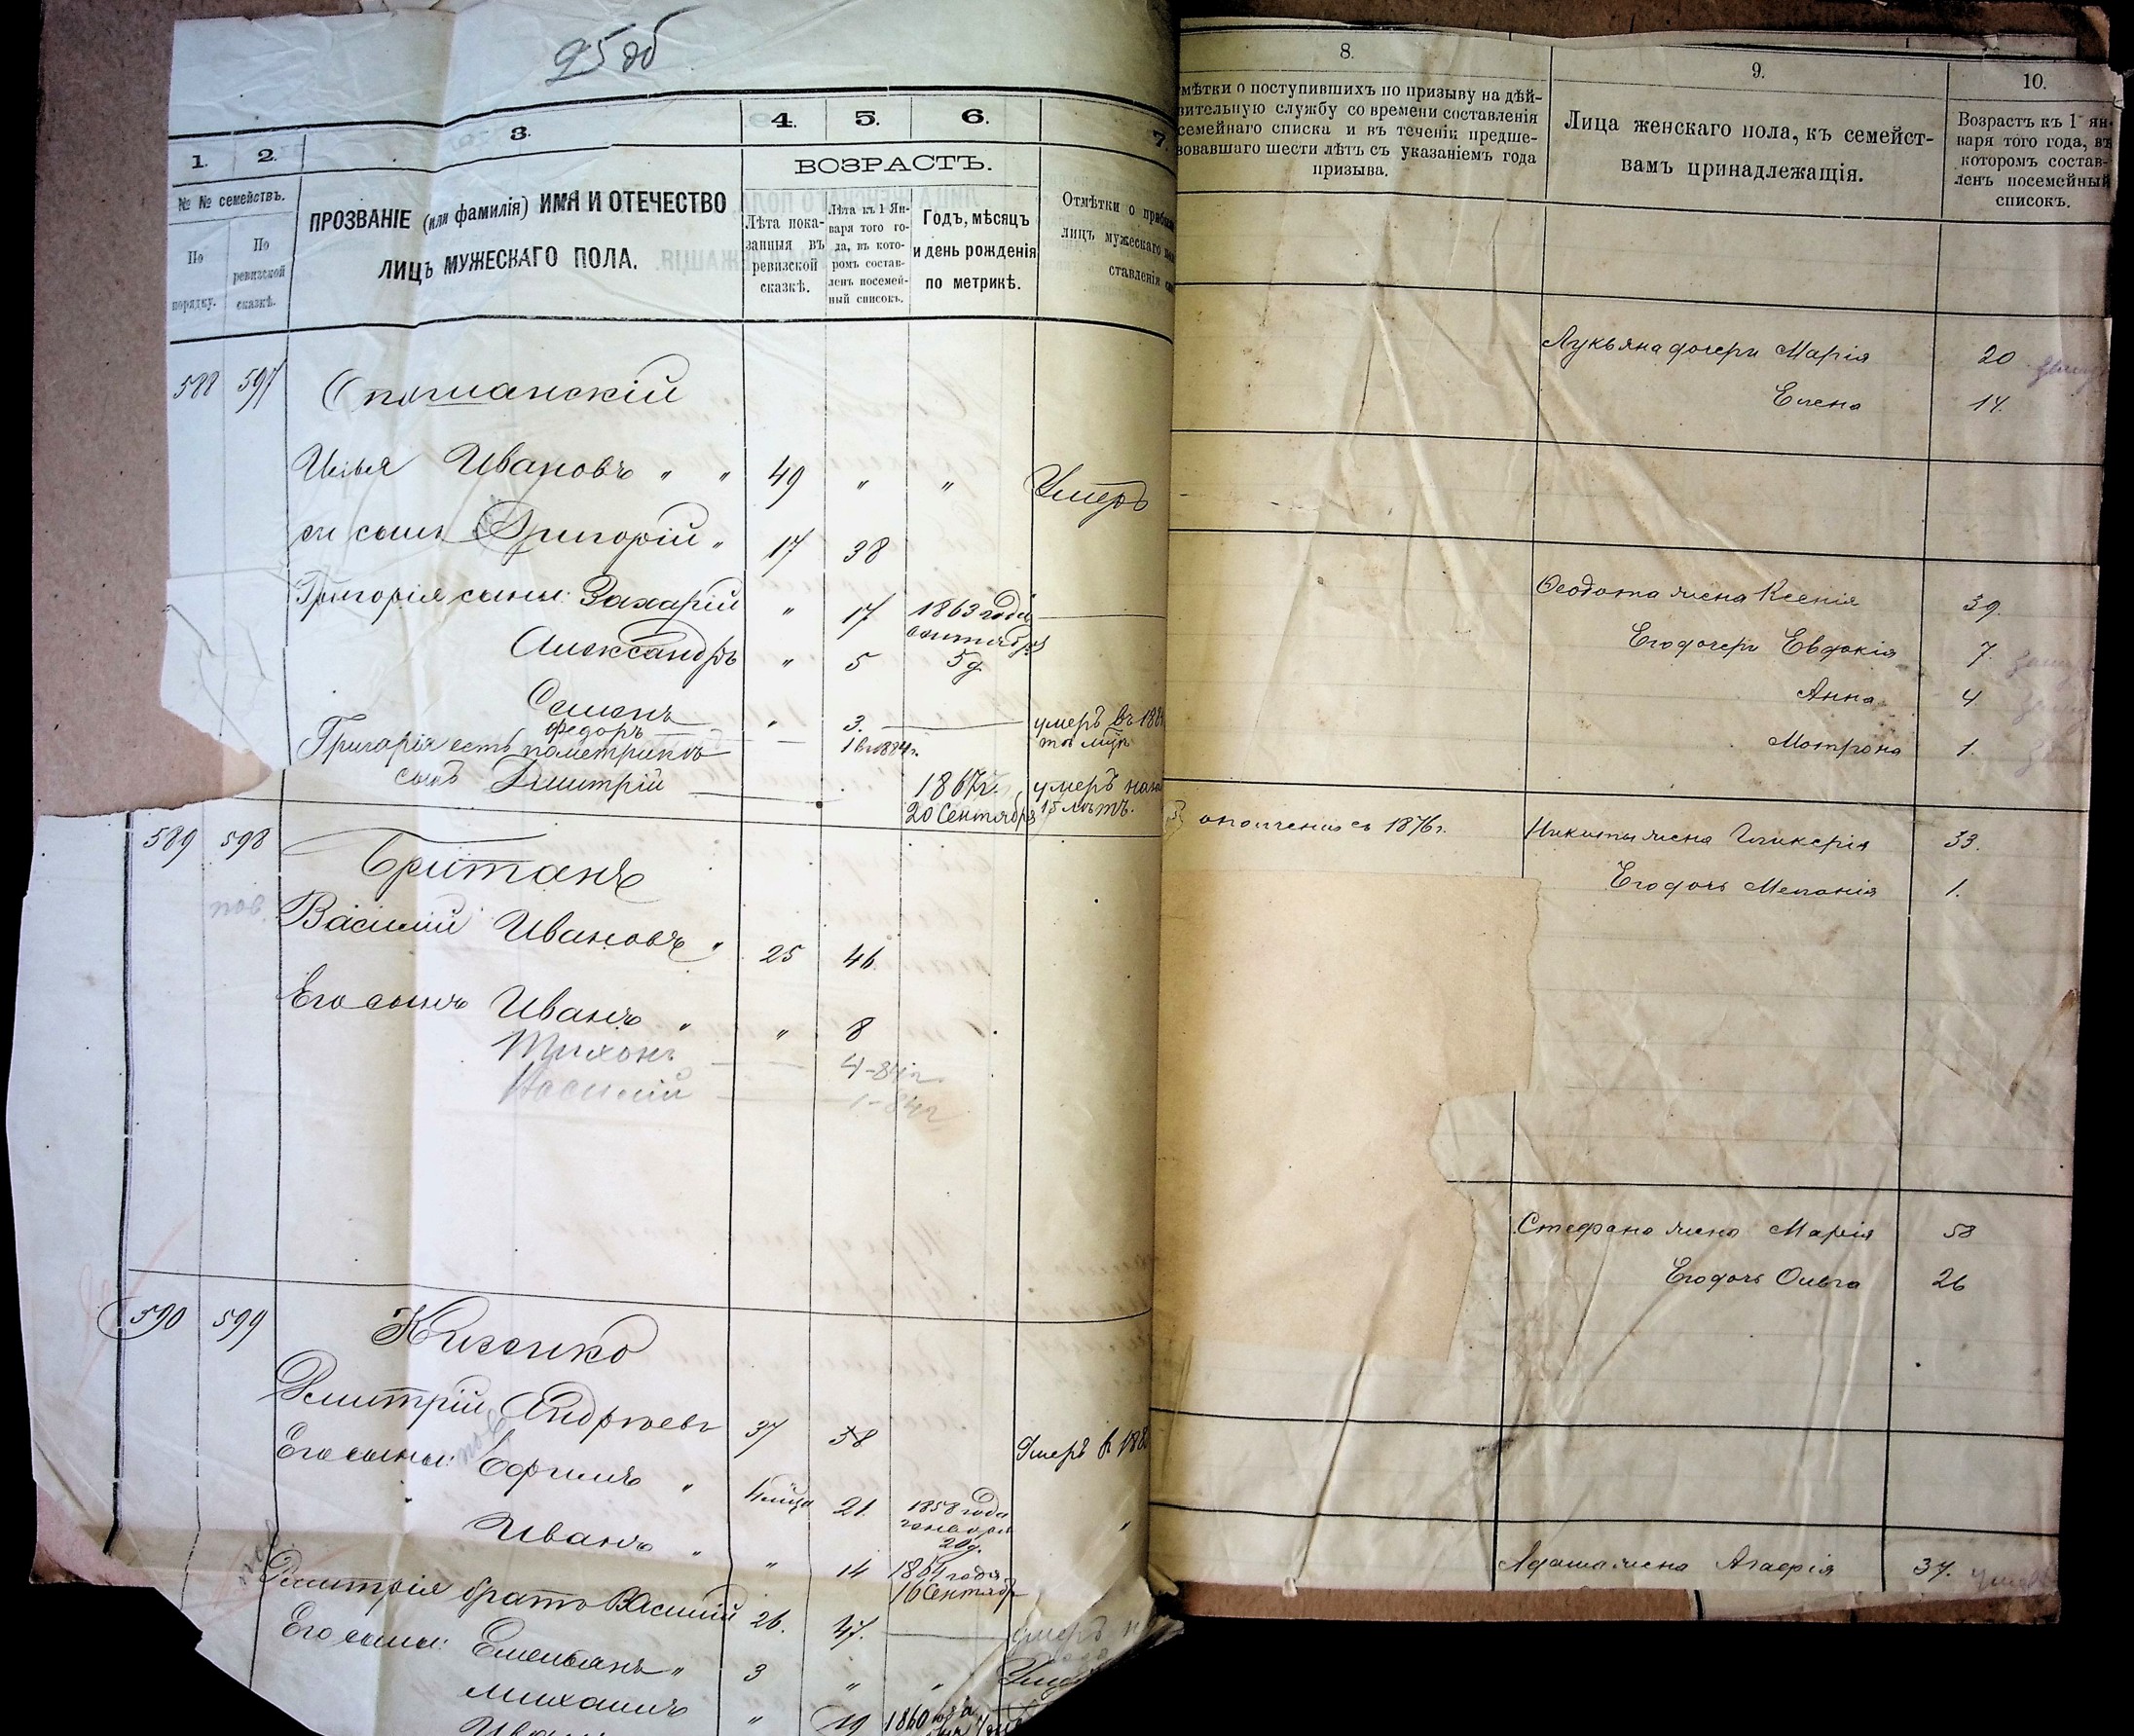 95 об
1.
2.
3.
4.
5.
6.
7.
№ № семействъ.
По порядку.
По ревизской сказкѣ.
ПРОЗВАНІЕ (или фамилія) ИМЯ И ОТЕЧЕСТВО
ЛИЦЪ МУЖЕСКАГО ПОЛА.
ВОЗРАСТЪ.
Лѣта пока-
занныя въ
ревизской
сказкѣ.
Лѣта къ 1 Ян-
варя того го-
да, въ кото-
ромъ состав-
ленъ посемей-
ный списокъ.
Годъ, мѣсяцъ
и день рожденія
по метрикѣ.
Отмѣтки о
лицъ мужескаго
ставленія
588 597
Илья Ивановъ " " 49 " " Умеръ
сынъ Григорій " 17 38
Григорія сыны: Захарій " 17 1863 года
сентября
Александръ " 5 5 д
Семенъ " 3. умеръ въ
Федоръ 1 въ 1884 г.
Григорія есть по метрикѣ
сынъ Дмитрій 1867 г. умеръ
20 Сентября 15 лѣтъ.
589 598 Британъ
Василій Ивановъ " 25 46
Его сынъ Иванъ " " 8
Тихонъ 4-84 г.
Василій 1-84 г
590 599
Дмитрій Андреевъ 37 58 Умеръ в
Его сыны: Ефимъ " 21 1858 года
января
20 д.
Иванъ " " 14 1864 года
16 Сентяб
Дмитрія братъ Василій 26. 47. умеръ
Его сыны: Емельянъ " 3 " "
Михаилъ " 19 1860 года
8.
мѣтки о поступившихъ по призыву на дѣй-
вительную службу со времени составленія
семейнаго списка и въ теченіи предше-
вовавшаго шести лѣтъ съ указаніемъ года
призыва.
9.
Лица женскаго пола, къ семейст-
вамъ принадлежащія.
10.
Возрастъ къ 1 ян-
варя того года, въ
которомъ состав-
ленъ посемейный
списокъ.
Лукьяна дочери Марія 20
Елена 14.
Ѳеодота жена Ксенія 39.
Его дочери Евдокія 7.
Анна 4.
Мотрона 1.
ополченіи съ 1876 г. Никиты жена Гликерія 33.
Его дочь Меланія 1.
Стефана жена Марія 58
Его дочь Ольга 26
жена Агафія 37.